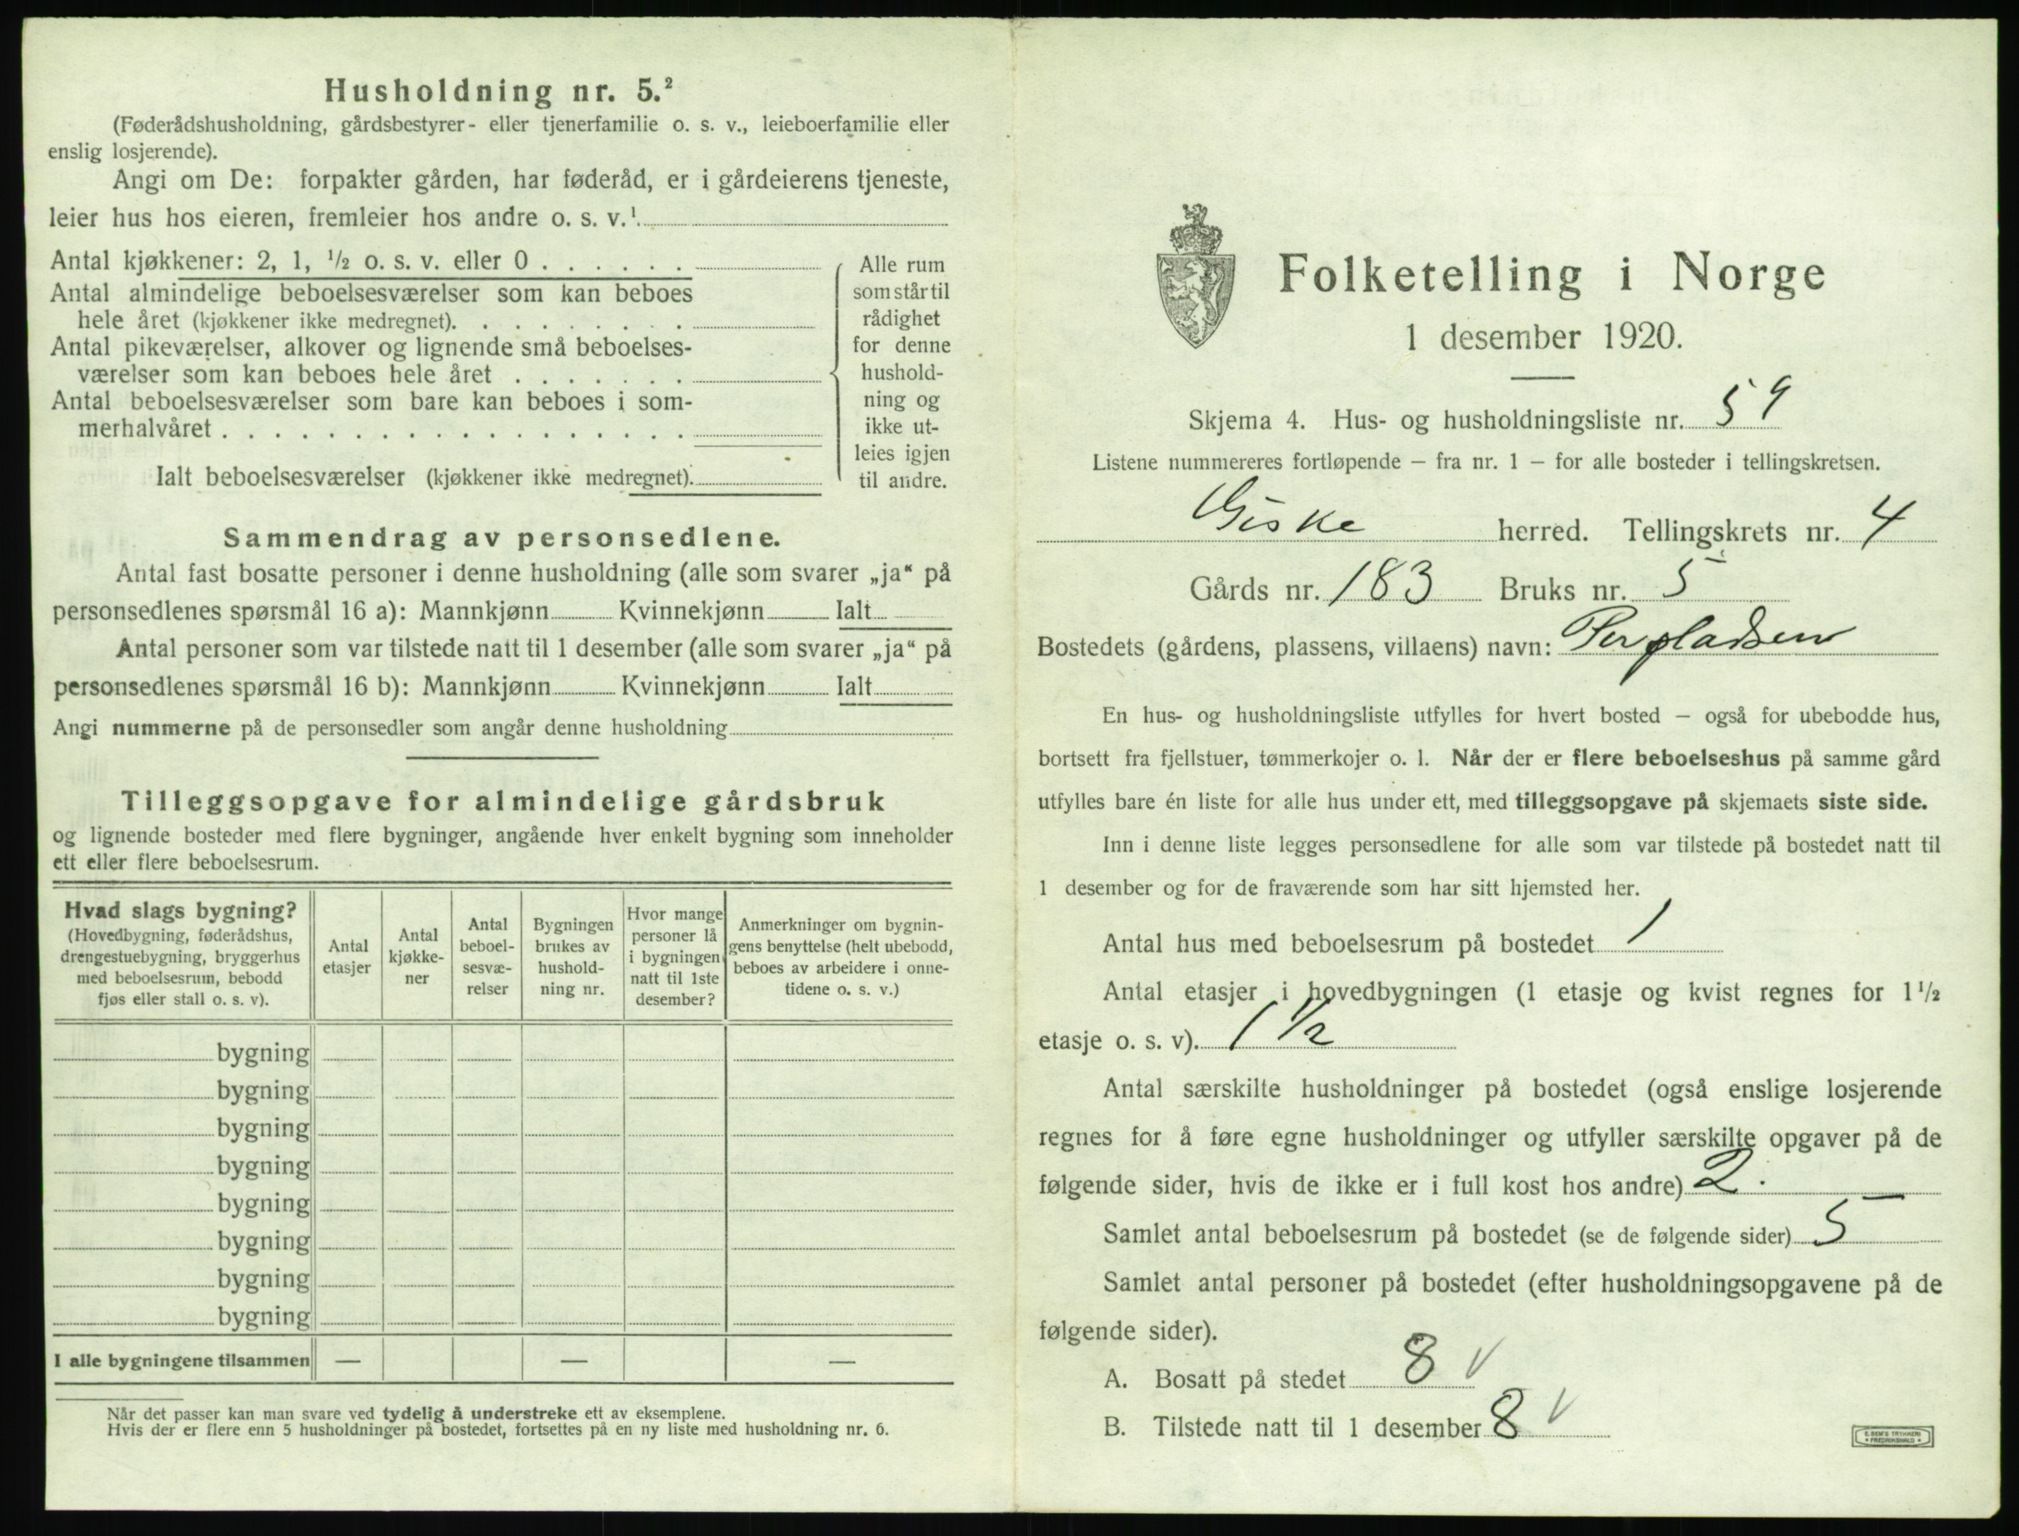 Husholdning nr. 5.²
(Føderådshusholdning, gårdsbestyrer- eller tjenerfamilie o. s. v., leieboerfamilie eller
enslig losjerende).
Angi om De: forpakter gården, har føderåd, er i gårdeierens tjeneste,
leier hus hos eieren, fremleier hos andre o. s. v.¹
Antal kjøkkener: 2, 1, ½ o. s. v. eller 0
Antal almindelige beboelsesværelser som kan beboes
hele året (kjøkkener ikke medregnet).
Antal pikeværelser, alkover og lignende små beboelses-
værelser som kan beboes hele året
Antal beboelsesværelser som bare kan beboes i som-
merhalvåret
Ialt beboelsesværelser (kjøkkener ikke medregnet).
Alle rum
som står til
rådighet
for denne
hushold-
ning og
ikke ut-
leies igjen
til andre.
Sammendrag av personsedlene.
Antal fast bosatte personer i denne husholdning (alle som svarer „ja“ på
personsedlenes spørsmål 16 a): Mannkjønn Kvinnekjønn Ialt
Antal personer som var tilstede natt til 1 desember (alle som svarer „ja“ på
personsedlenes spørsmål 16 b): Mannkjønn Kvinnekjønn Ialt
Angi nummerne på de personsedler som angår denne husholdning
Tilleggsopgave for almindelige gårdsbruk
og lignende bosteder med flere bygninger, angående hver enkelt bygning som inneholder
ett eller flere beboelsesrum.
Hvad slags bygning?
(Hovedbygning, føderådshus,
drengestuebygning, bryggerhus
med beboelsesrum, bebodd
fjøs eller stall o. s. v).
Antal
etasjer
Antal
kjøkke-
ner
Antal
beboel-
sesvæ-
relser
Bygningen
brukes av
hushold-
ning nr.
Hvor mange
personer lå
i bygningen
natt til 1ste
desember?
Anmerkninger om bygnin-
gens benyttelse (helt ubebodd,
beboes av arbeidere i onne-
tidene o. s. v.)
bygning
bygning
bygning
bygning
bygning
bygning
bygning
bygning
I alle bygningene tilsammen — — —
Når det passer kan man svare ved tydelig å understreke ett av eksemplene.
Hvis der er flere enn 5 husholdninger på bostedet, fortsettes på en ny liste med husholdning nr. 6.
Folketelling i Norge
1 desember 1920.
Skjema 4. Hus- og husholdningsliste nr. 59
Listene nummereres fortløpende – fra nr. 1 – for alle bosteder i tellingskretsen.
Giske herred. Tellingskrets nr. 4
Gårds nr. 183 Bruks nr. 5
Bostedets (gårdens, plassens, villaens) navn: Perpladsen
En hus- og husholdningsliste utfylles for hvert bosted – også for ubebodde hus,
bortsett fra fjellstuer, tømmerkojer o. l. Når der er flere beboelseshus på samme gård
utfylles bare én liste for alle hus under ett, med tilleggsopgave på skjemaets siste side.
Inn i denne liste legges personsedlene for alle som var tilstede på bostedet natt til
1 desember og for de fraværende som har sitt hjemsted her.
Antal hus med beboelsesrum på bostedet 1
Antal etasjer i hovedbygningen (1 etasje og kvist regnes for 1½
etasje o. s. v). 1 ½
Antal særskilte husholdninger på bostedet (også enslige losjerende
regnes for å føre egne husholdninger og utfyller særskilte opgaver på de
følgende sider, hvis de ikke er i full kost hos andre) 2.
Samlet antal beboelsesrum på bostedet (se de følgende sider) 5
Samlet antal personer på bostedet (efter husholdningsopgavene på de
følgende sider).
A. Bosatt på stedet 8 v
B. Tilstede natt til 1 desember 8 v
E. SEM'S TRYKKERI
FREDRIKSHALD